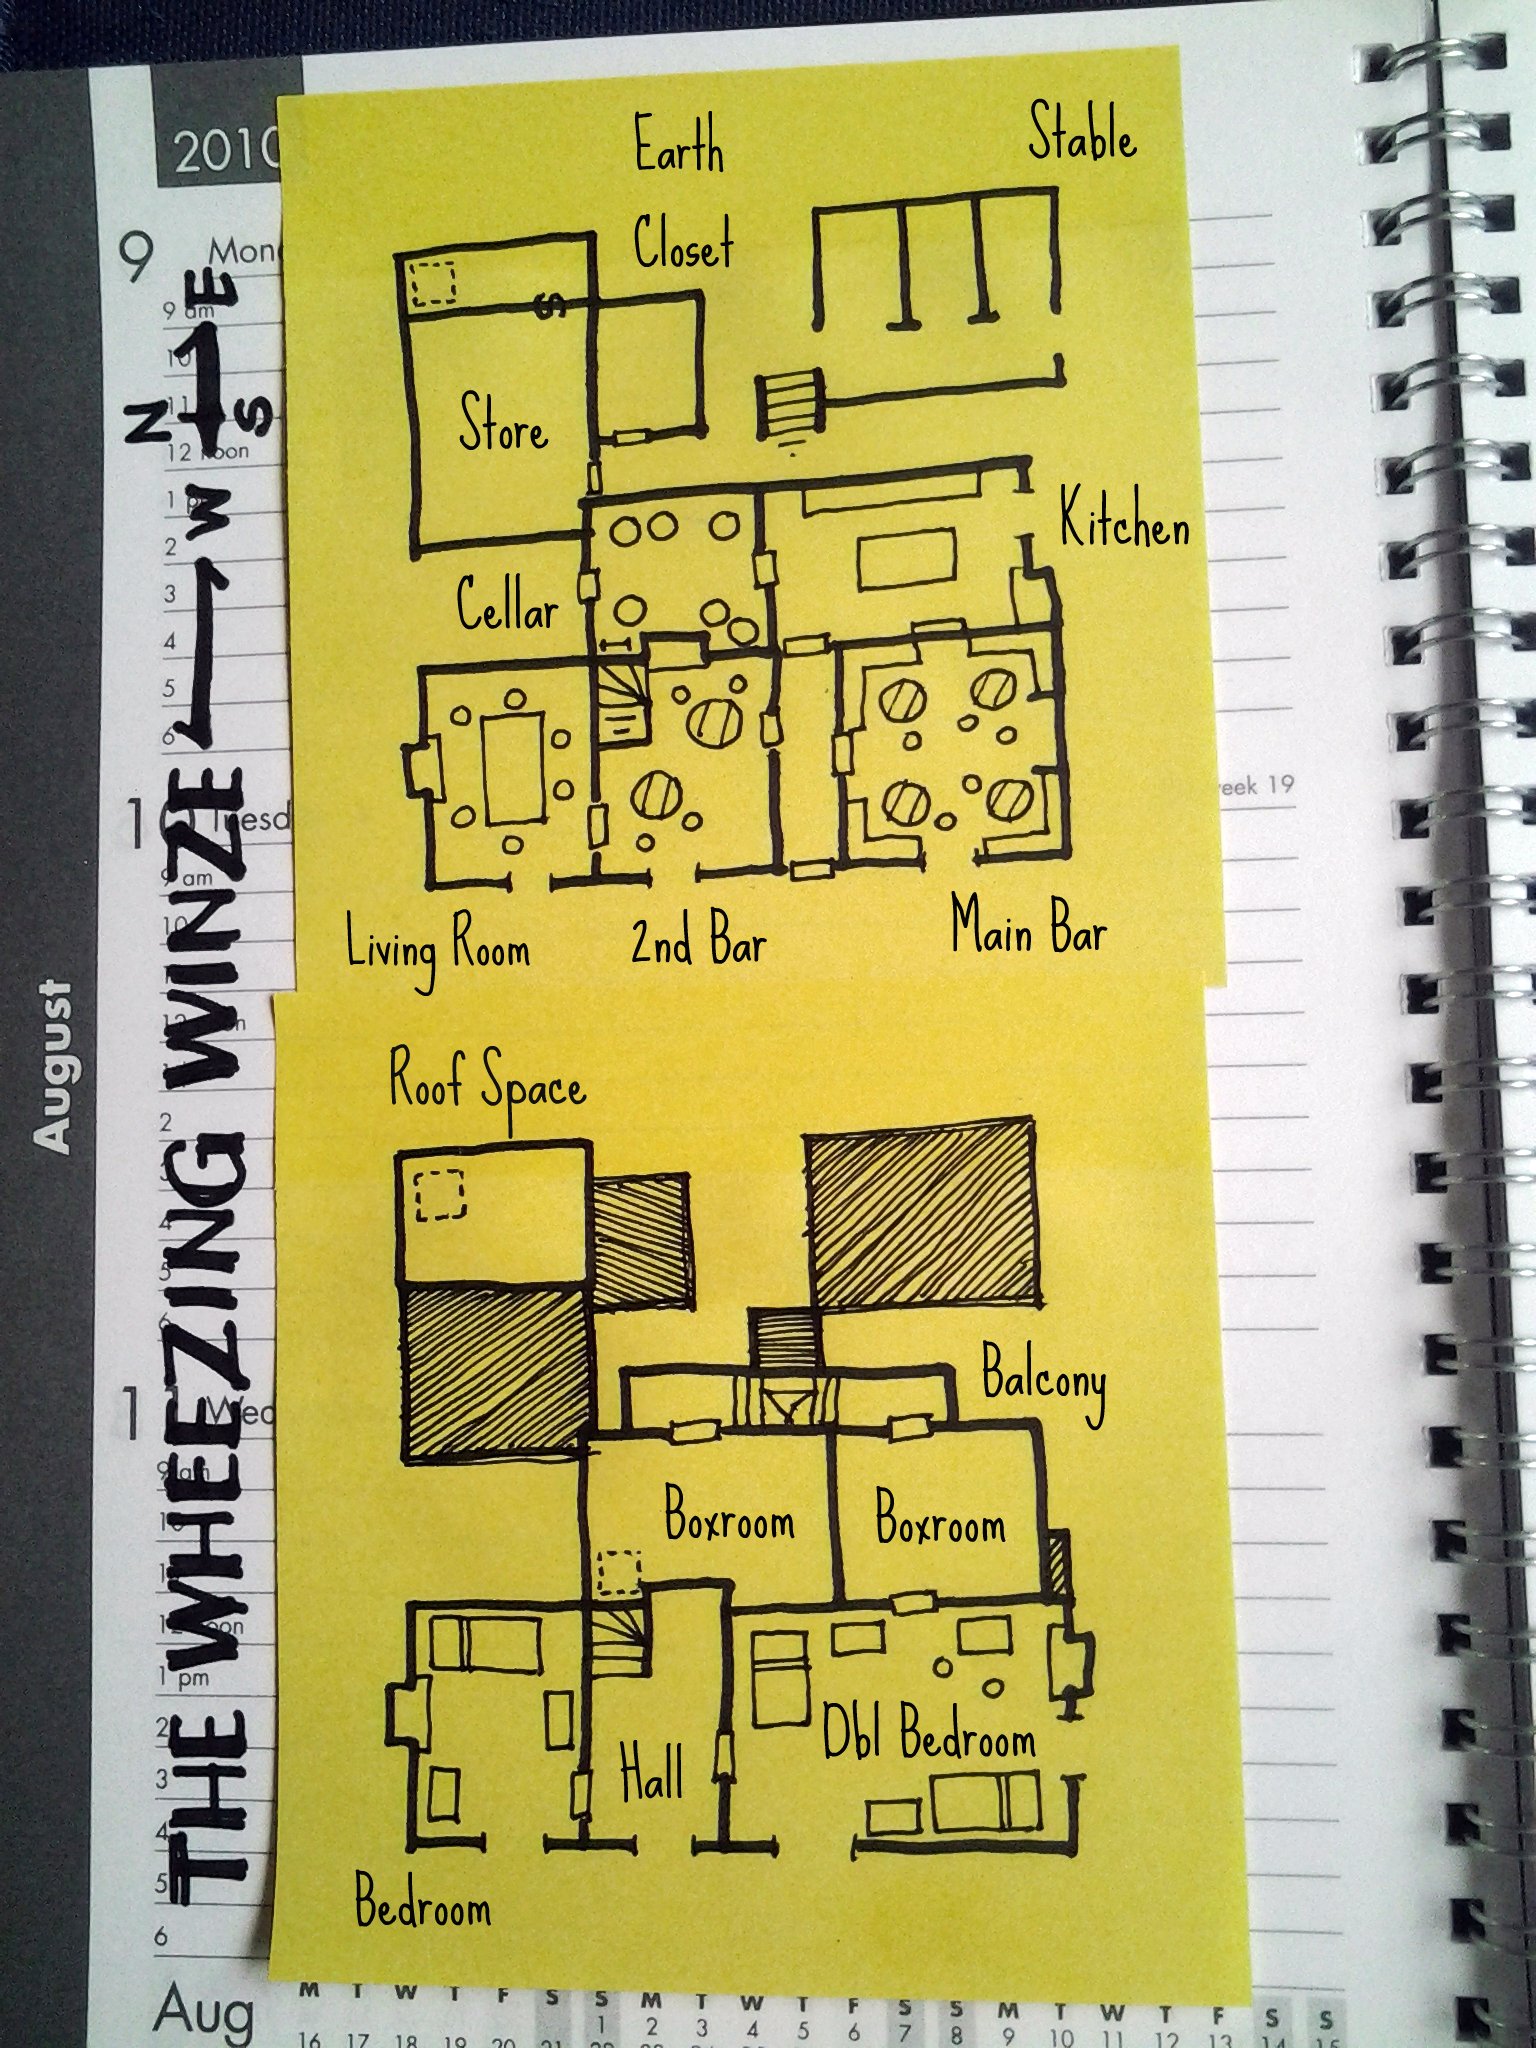 2010
9 Mon
9 am
10
11
12 noon
1 p
2
3
4
5
6
10 Tuesd
eek 19
9 am
10
12 n
2
3
4
5
6
11 Wed
9 am
10
1
12 noon
1 pm
2
3
4
5
6
August
E
N S
W
THE WHEEZING WINZE
Earth
Closet
Stable
S
Store
Kitchen
Cellar
Living Room
2nd Bar
Main Bar
Roof Space
Balcony
Boxroom
Boxroom
Dbl Bedroom
Hall
Bedroom
Aug
M T W T F S S M T W T F S S M T W T F S S
1 2 3 4 5 6 7 8 9 10 11 12 13 14 15
16 17 18 19 20 21 22